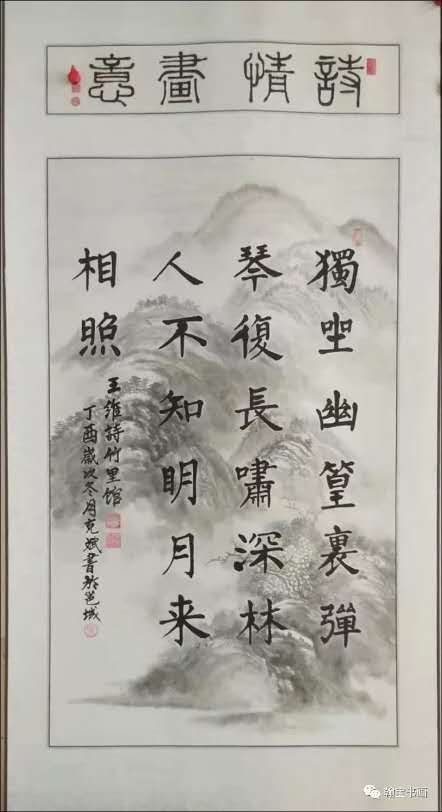 詩情畫意
獨坐幽篁裏彈
琴復長嘯深林
人不知明月来
相照
王維詩竹里馆
丁酉歲次冬月克斌書於邕城
翰宝书画